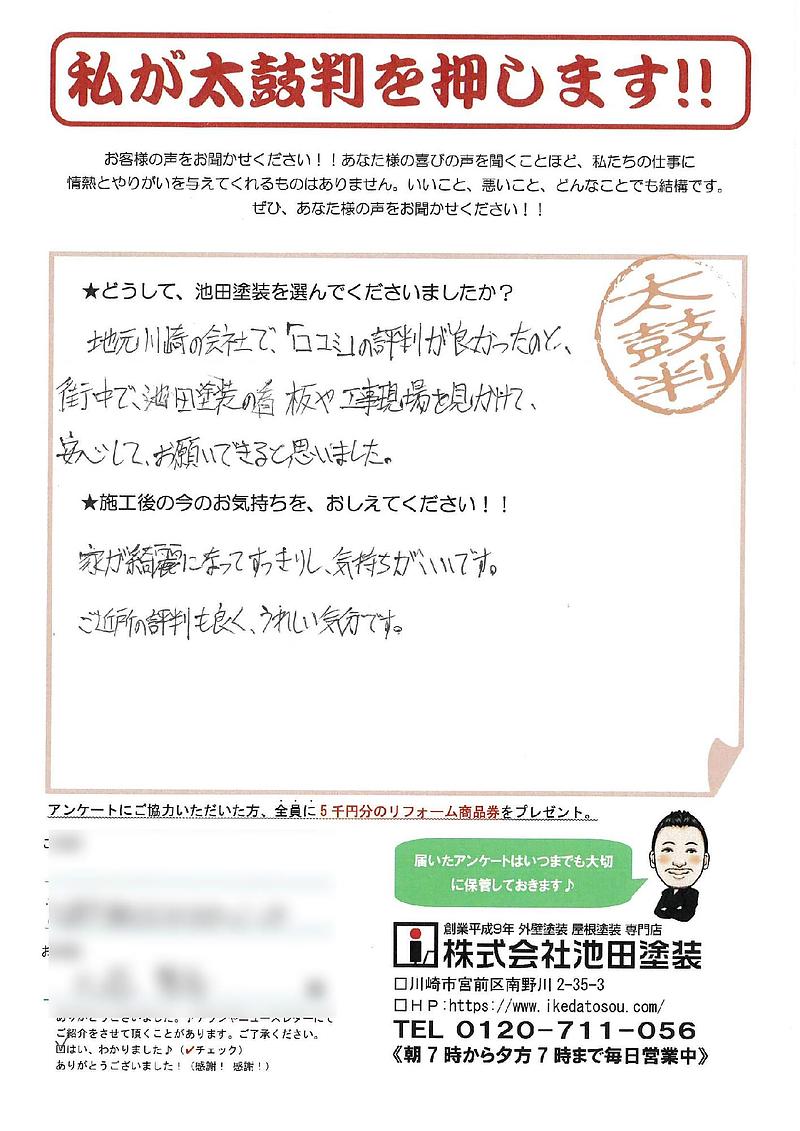 私が太鼓判を押します!!
お客様の声をお聞かせください！！あなた様の喜びの声を聞くことほど、私たちの仕事に
情熱とやりがいを与えてくれるものはありません。いいこと、悪いこと、どんなことでも結構です。
ぜひ、あなた様の声をお聞かせください！！
太鼓判
★どうして、池田塗装を選んでくださいましたか？
地元川崎の会社で、「口コミ」の評判が良かったのと、
街中で、池田塗装の看板や工事現場を見かけて、
安心して、お願いできると思いました。
★施工後の今のお気持ちを、おしえてください！！
家が綺麗になってすっきりし、気持ちがいいです。
ご近所の評判も良く、うれしい気分です。
アンケートにご協力いただいた方、全員に5千円分のリフォーム商品券をプレゼント。
届いたアンケートはいつまでも大切
に保管しておきます♪
創業平成9年 外壁塗装 屋根塗装 専門店
株式会社池田塗装
□川崎市宮前区南野川2-35-3
□ＨＰ:https://www.ikedatosou.com/
TEL 0120-711-056
《朝7時から夕方7時まで毎日営業中》
ありがとうございました。チラシやニュースレターにて
ご紹介をさせて頂くことがあります。ご了承ください。
☑はい、わかりました♪（✔チェック）
ありがとうございました！（感謝！感謝！）